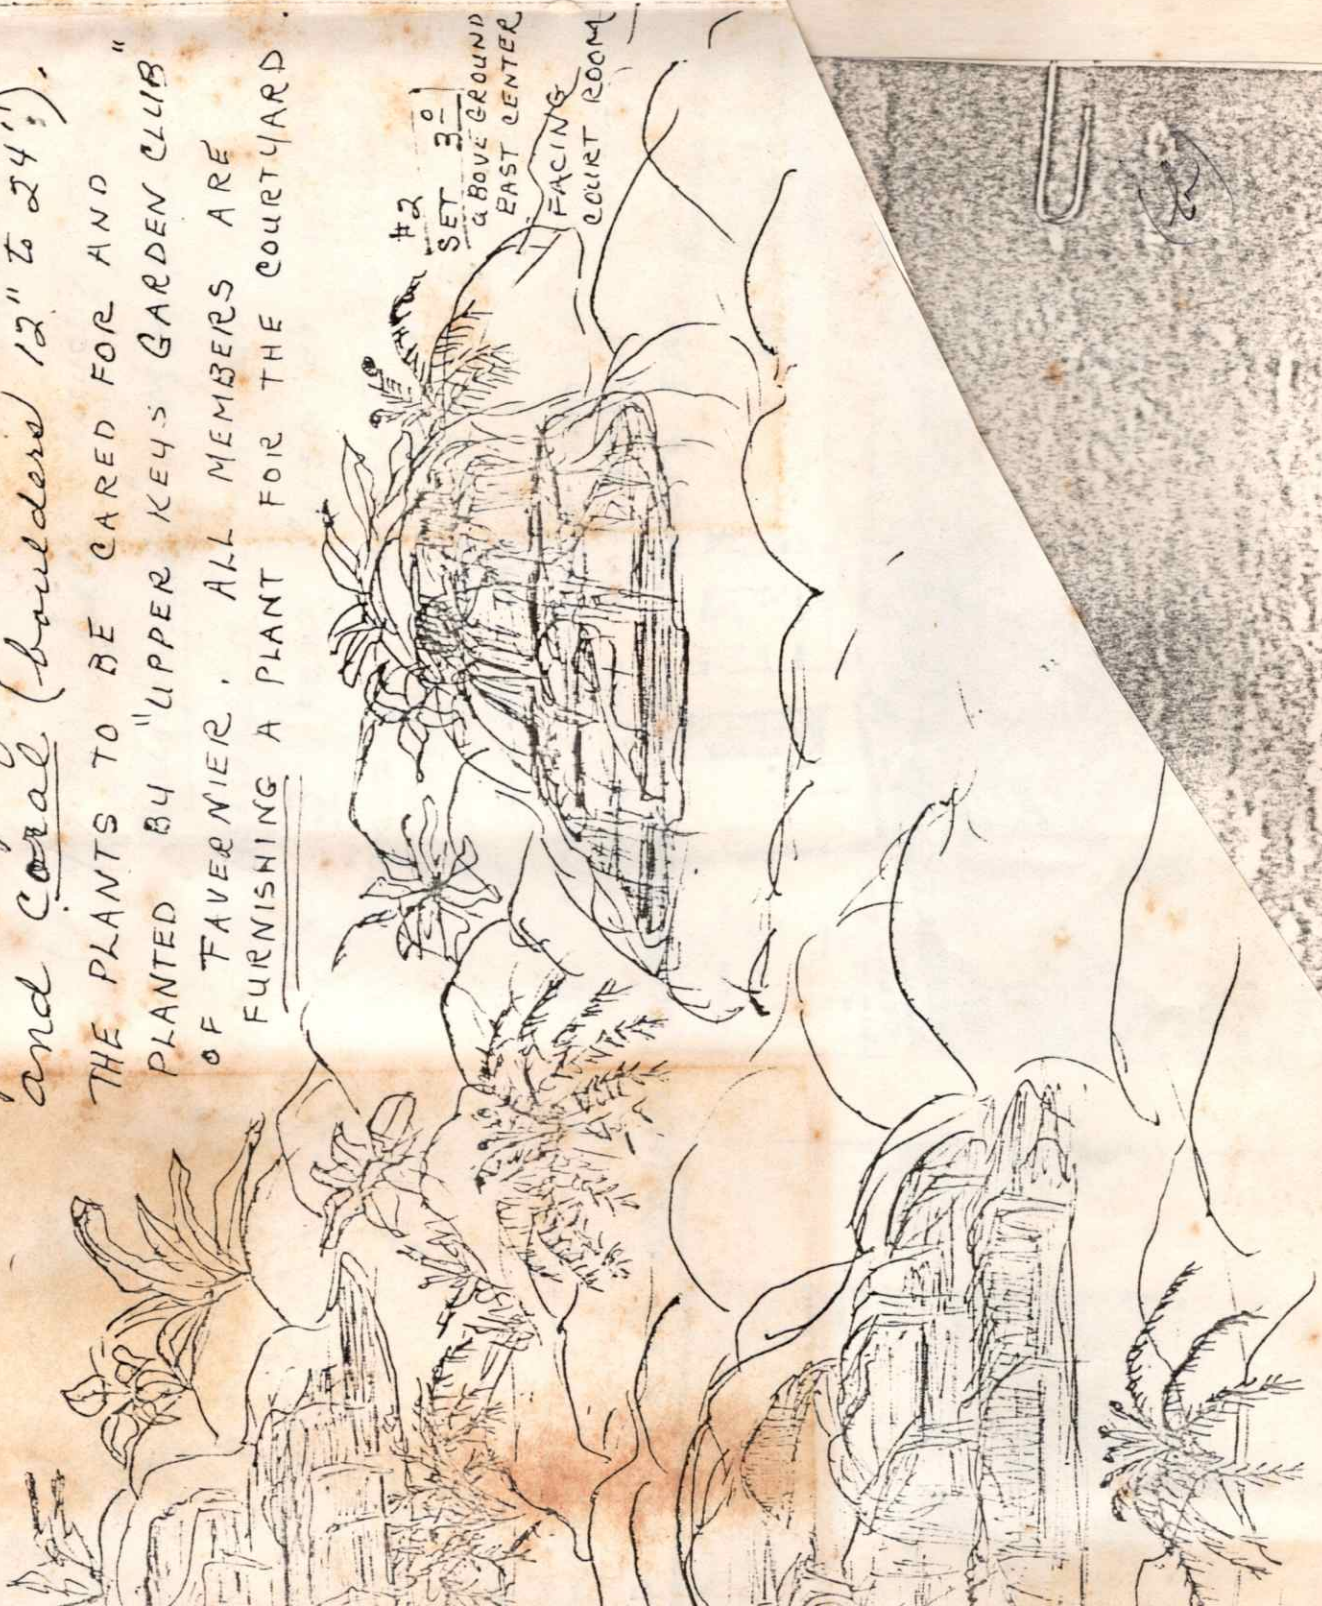 and coral (boulders 12" to 24").
THE PLANTS TO BE CARED FOR AND
PLANTED BY "UPPER KEYS GARDEN CLUB"
OF TAVERNIER. ALL MEMBERS ARE
FURNISHING A PLANT FOR THE COURTYARD.
#2
SET 3'-0"
aBOVE GROUND
EAST CENTER
FACING
COURT ROOM